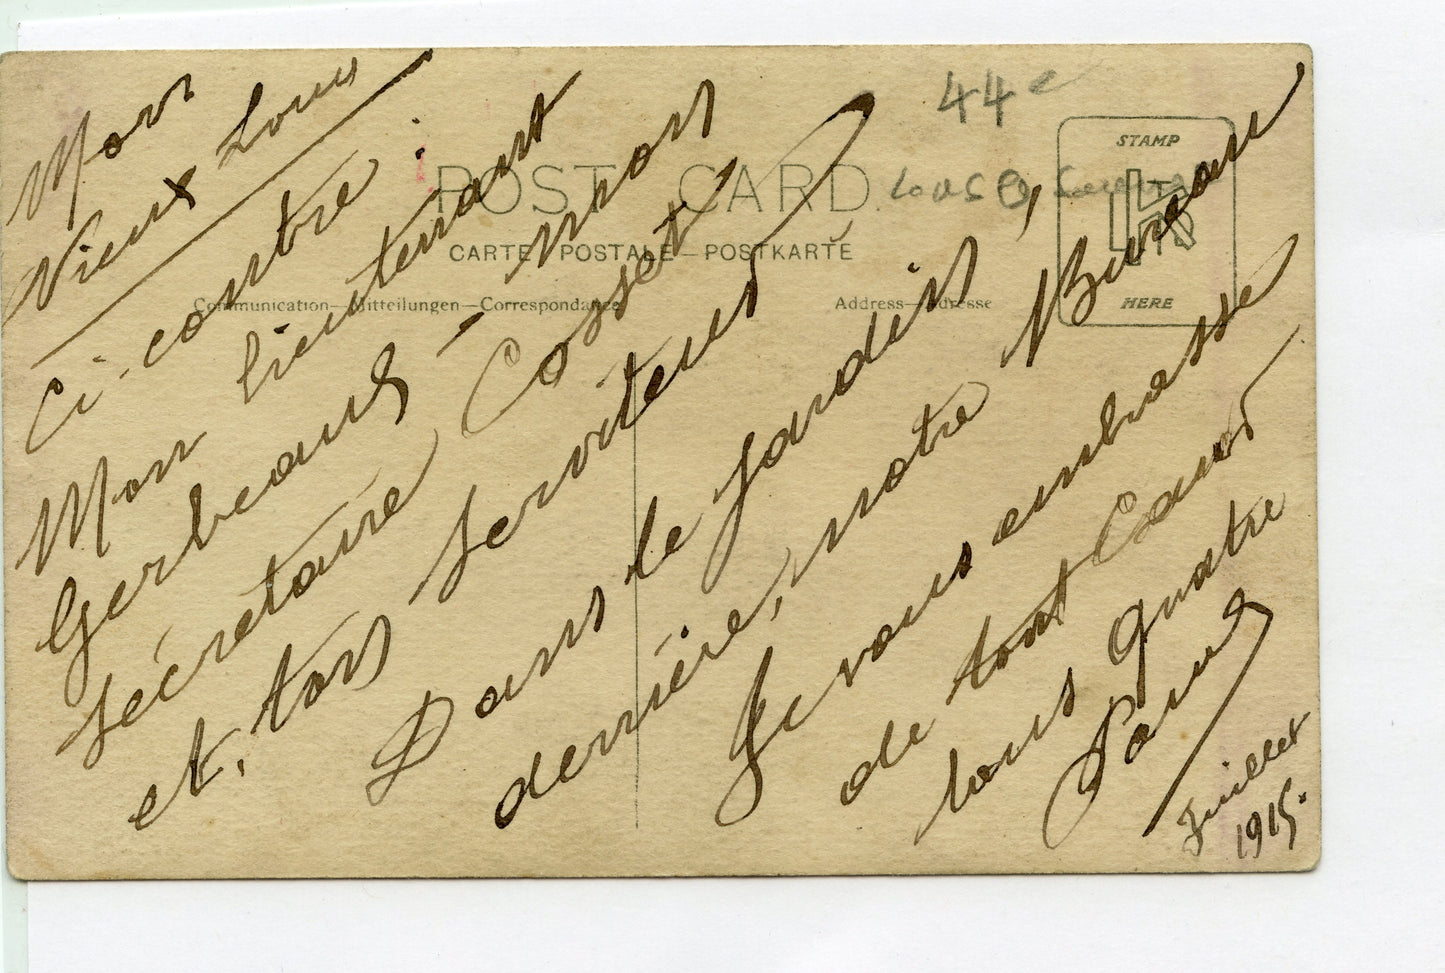 Mon
Vieux Louis
Ci-contre :
Mon lieutenant
Gerbeaud - mon
secrétaire Cosset,
et, ton serviteur
Dans le jardin,
derrière, notre Bureau
Je vous embrasse
de tout Coeur
tous quatre
Paul
Juillet
1915.
44e
POST CARD.
CARTE POSTALE — POSTKARTE
Communication—Mitteilungen—Correspondance
Address—Adresse
STAMP
HERE